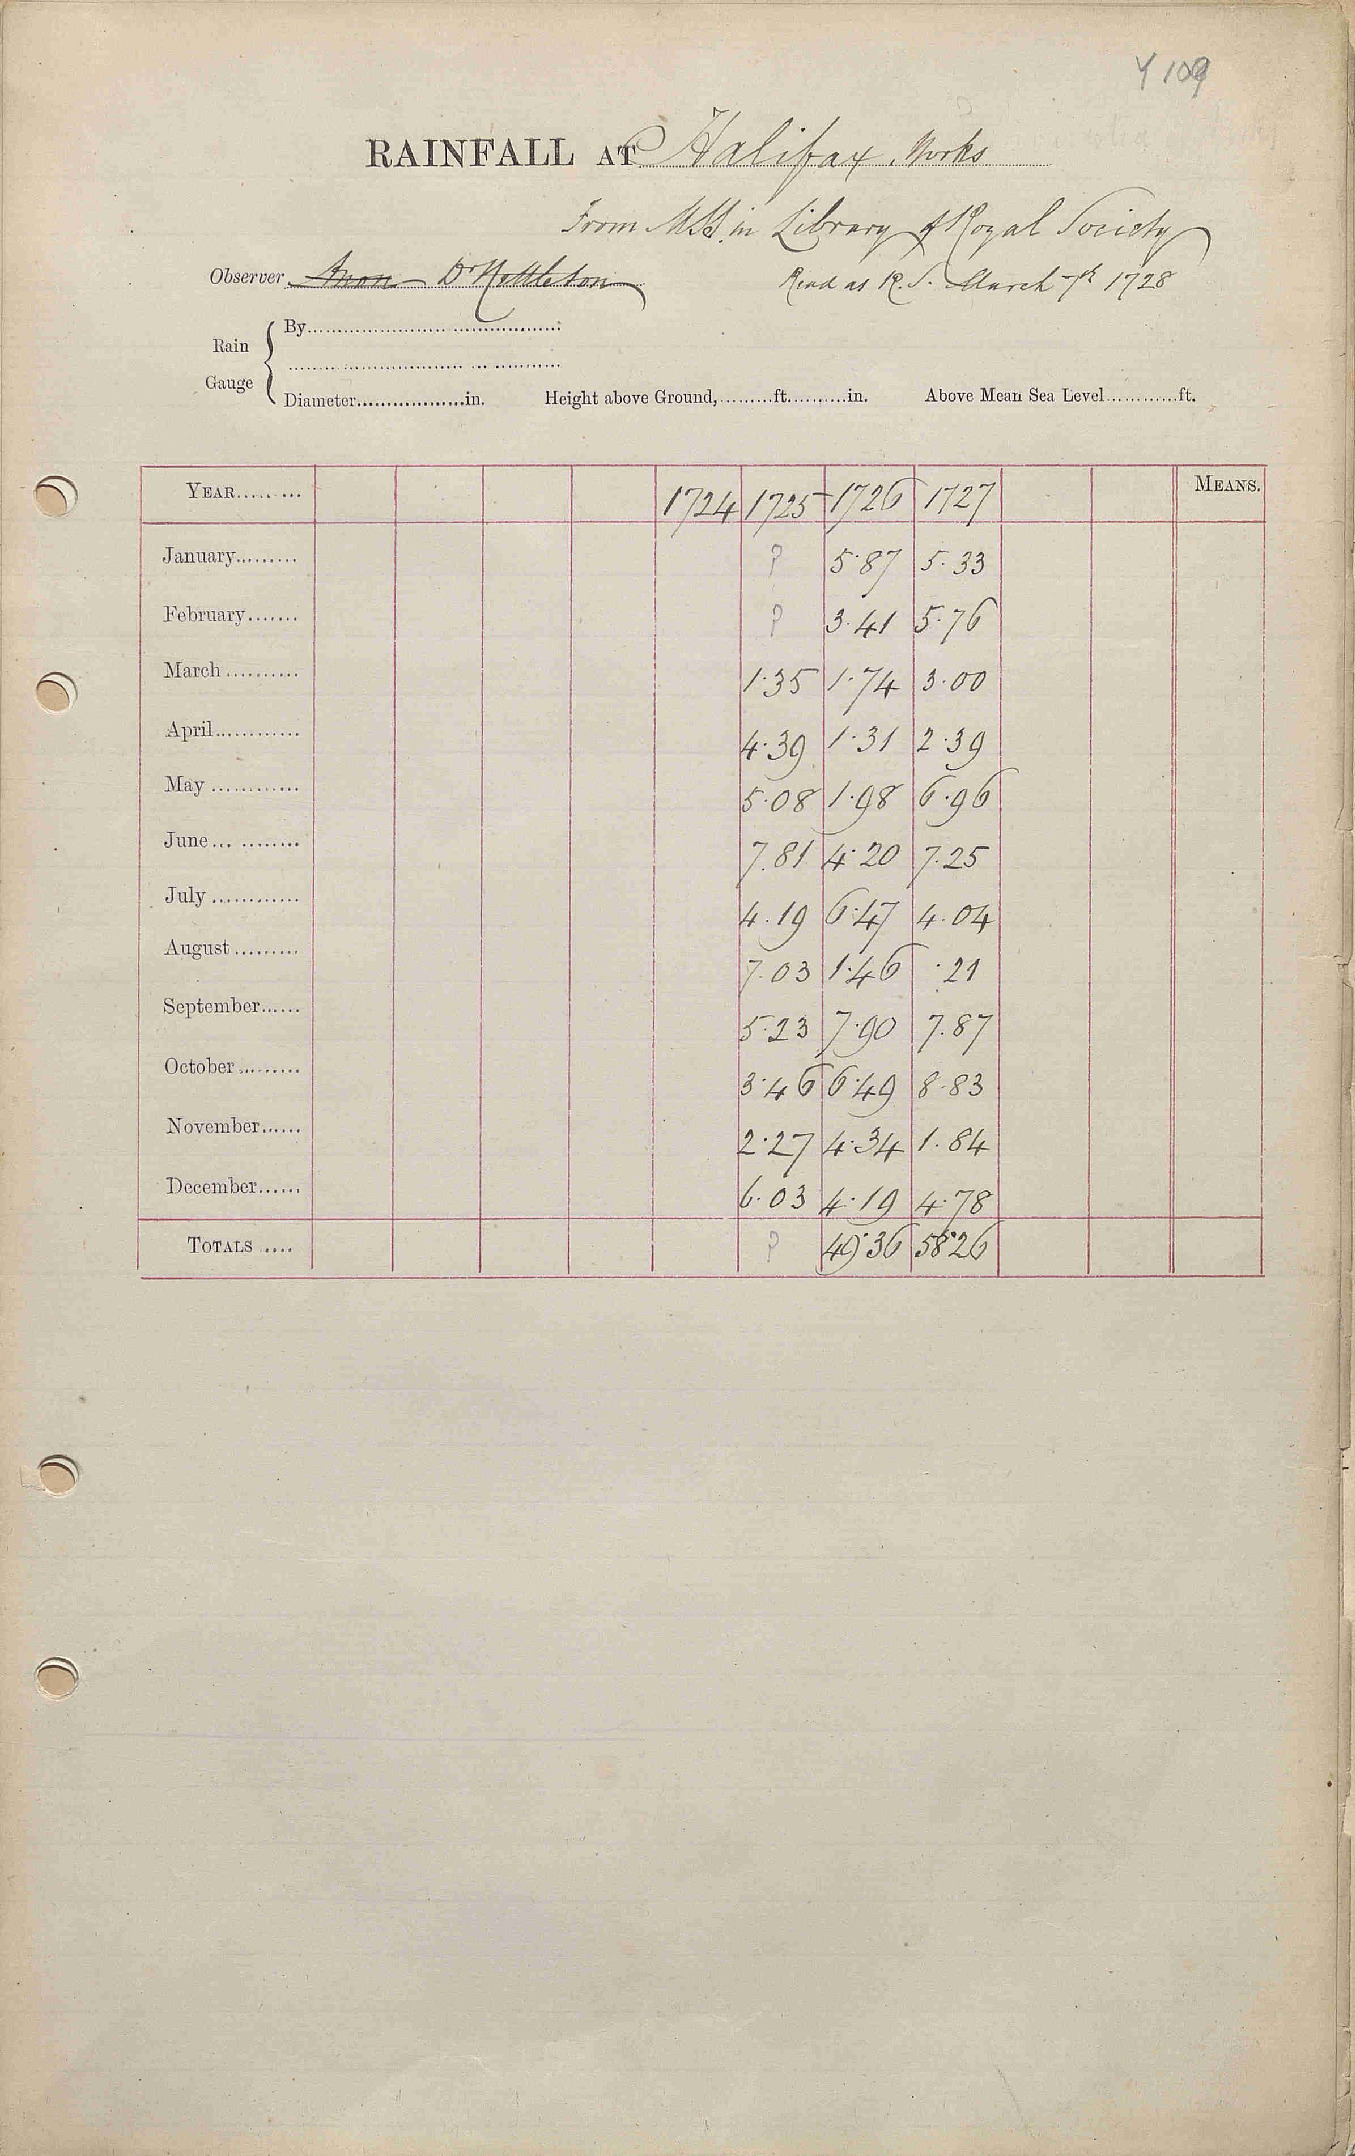 Y 109
RAINFALL AT Halifax, Yorks
From MSS. in Library of Royal Society
Observer Anon Dr Nettleton Read at R. S. March 7th 1728
Rain Gauge { By
Diameter in. Height above Ground, ft. in. Above Mean Sea Level ft.
YEAR 1724 1725 1726 1727 MEANS.
January ? 5.87 5.33
February ? 3.41 5.76
March 1.35 1.74 3.00
April 4.39 1.31 2.39
May 5.08 1.98 6.96
June 7.81 4.20 7.25
July 4.19 6.47 4.04
August 7.03 1.46 .21
September 5.23 7.90 7.87
October 3.46 6.49 8.83
November 2.27 4.34 1.84
December 6.03 4.19 4.78
TOTALS ? 49.36 58.26